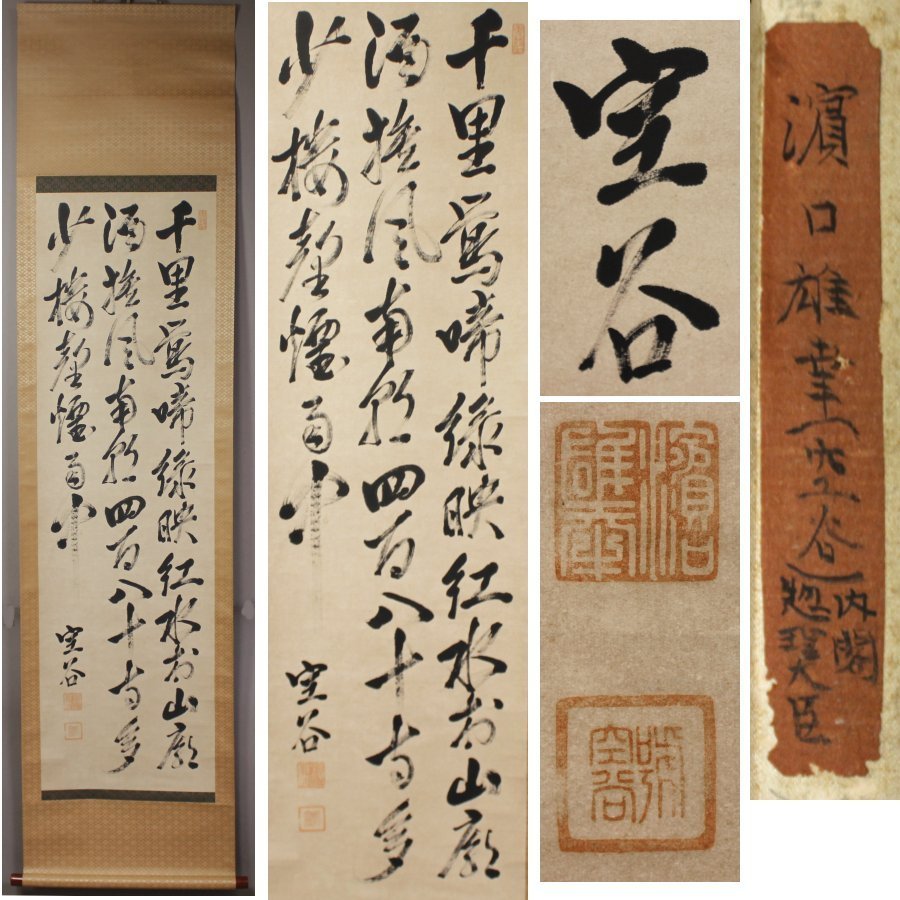 千里鶯啼緑映紅水村山郭
酒旗風南朝四百八十寺多
少樓臺煙雨中
空谷
千里鶯啼緑映紅水村山郭
酒旗風南朝四百八十寺多
少樓臺煙雨中
空谷
空谷
濱口
雄幸
空谷
濱口雄幸(空谷)
内閣
惣理大臣